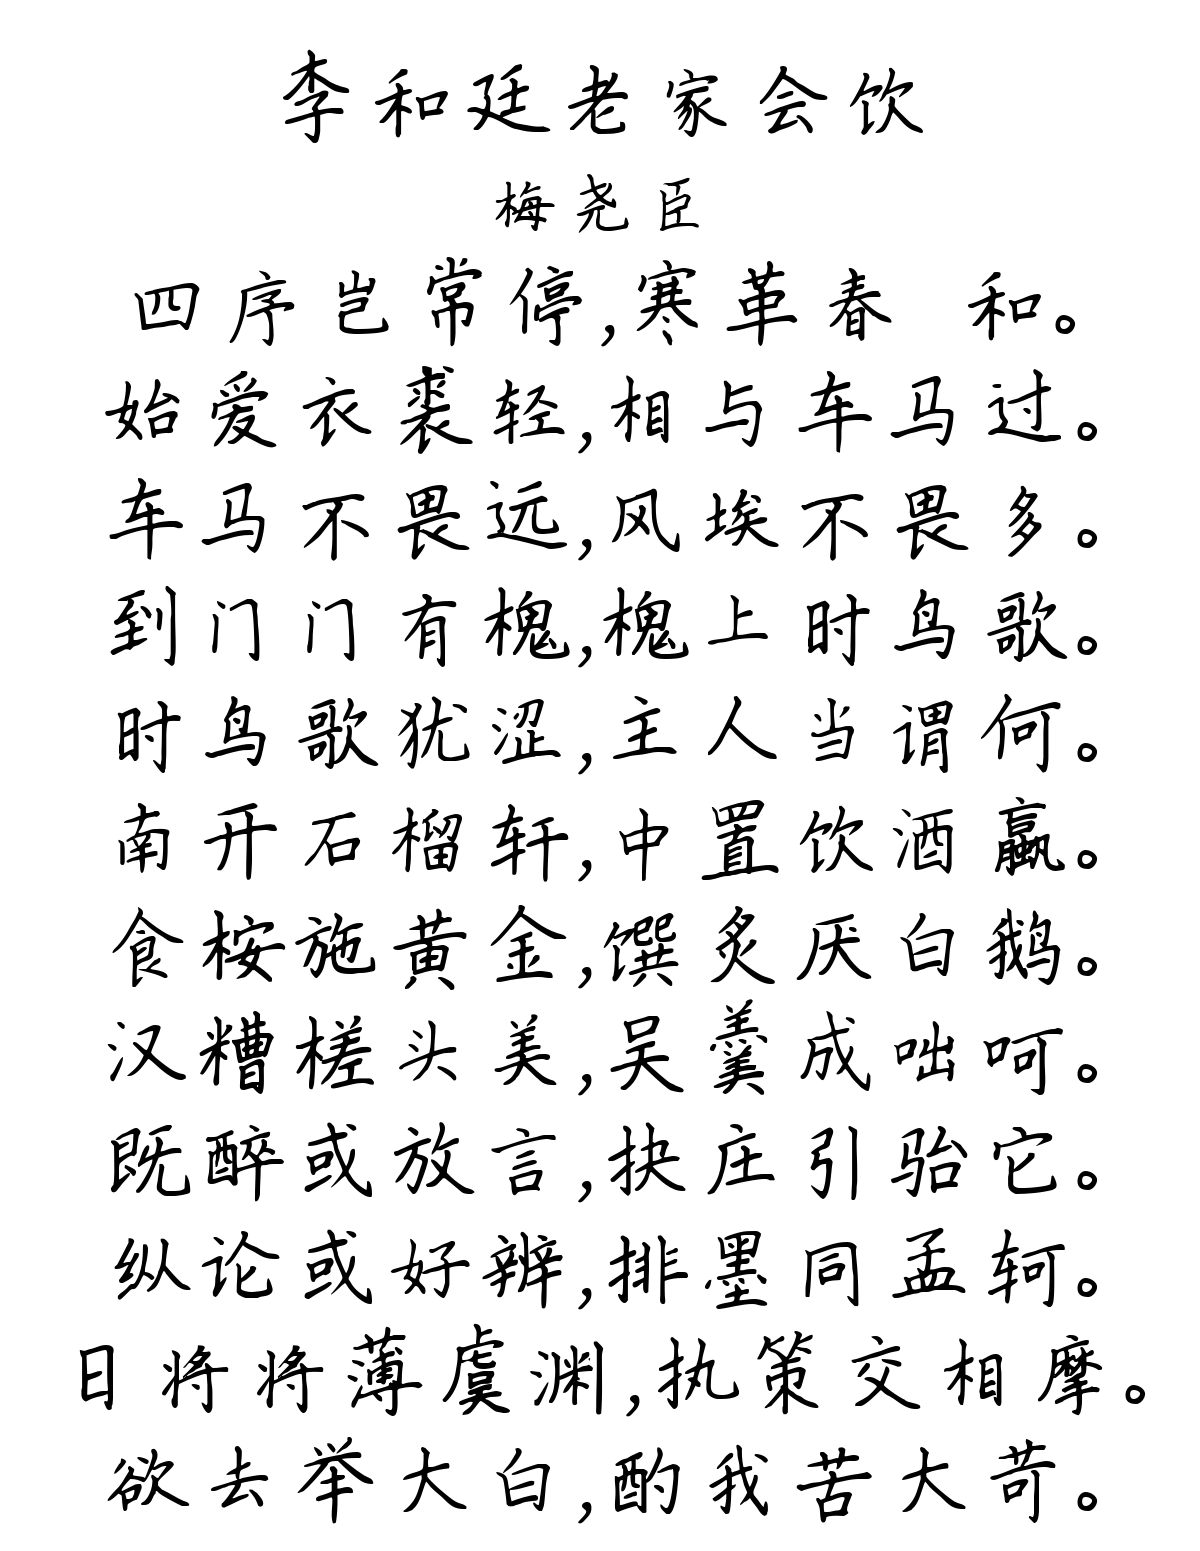 李和廷老家会饮
梅尧臣
四序岂常停,寒革春 和。
始爱衣裘轻,相与车马过。
车马不畏远,风埃不畏多。
到门门有槐,槐上时鸟歌。
时鸟歌犹涩,主人当谓何。
南开石榴轩,中置饮酒蠃。
食桉施黄金,馔炙厌白鹅。
汉糟槎头美,吴羹成咄呵。
既醉或放言,抉庄引骀它。
纵论或好辨,排墨同孟轲。
日将将薄虞渊,执策交相摩。
欲去举大白,酌我苦大苛。